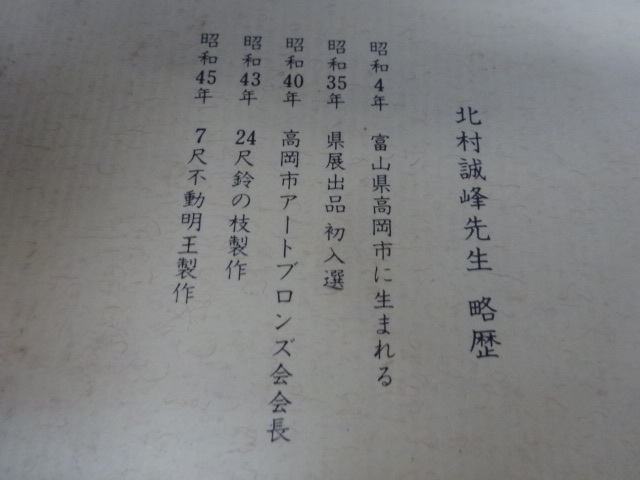 北村誠峰先生 略歴
昭和4年 富山県高岡市に生まれる
昭和35年 県展出品 初入選
昭和40年 高岡市アートブロンズ会会長
昭和43年 24尺鈴の枝製作
昭和45年 7尺不動明王製作